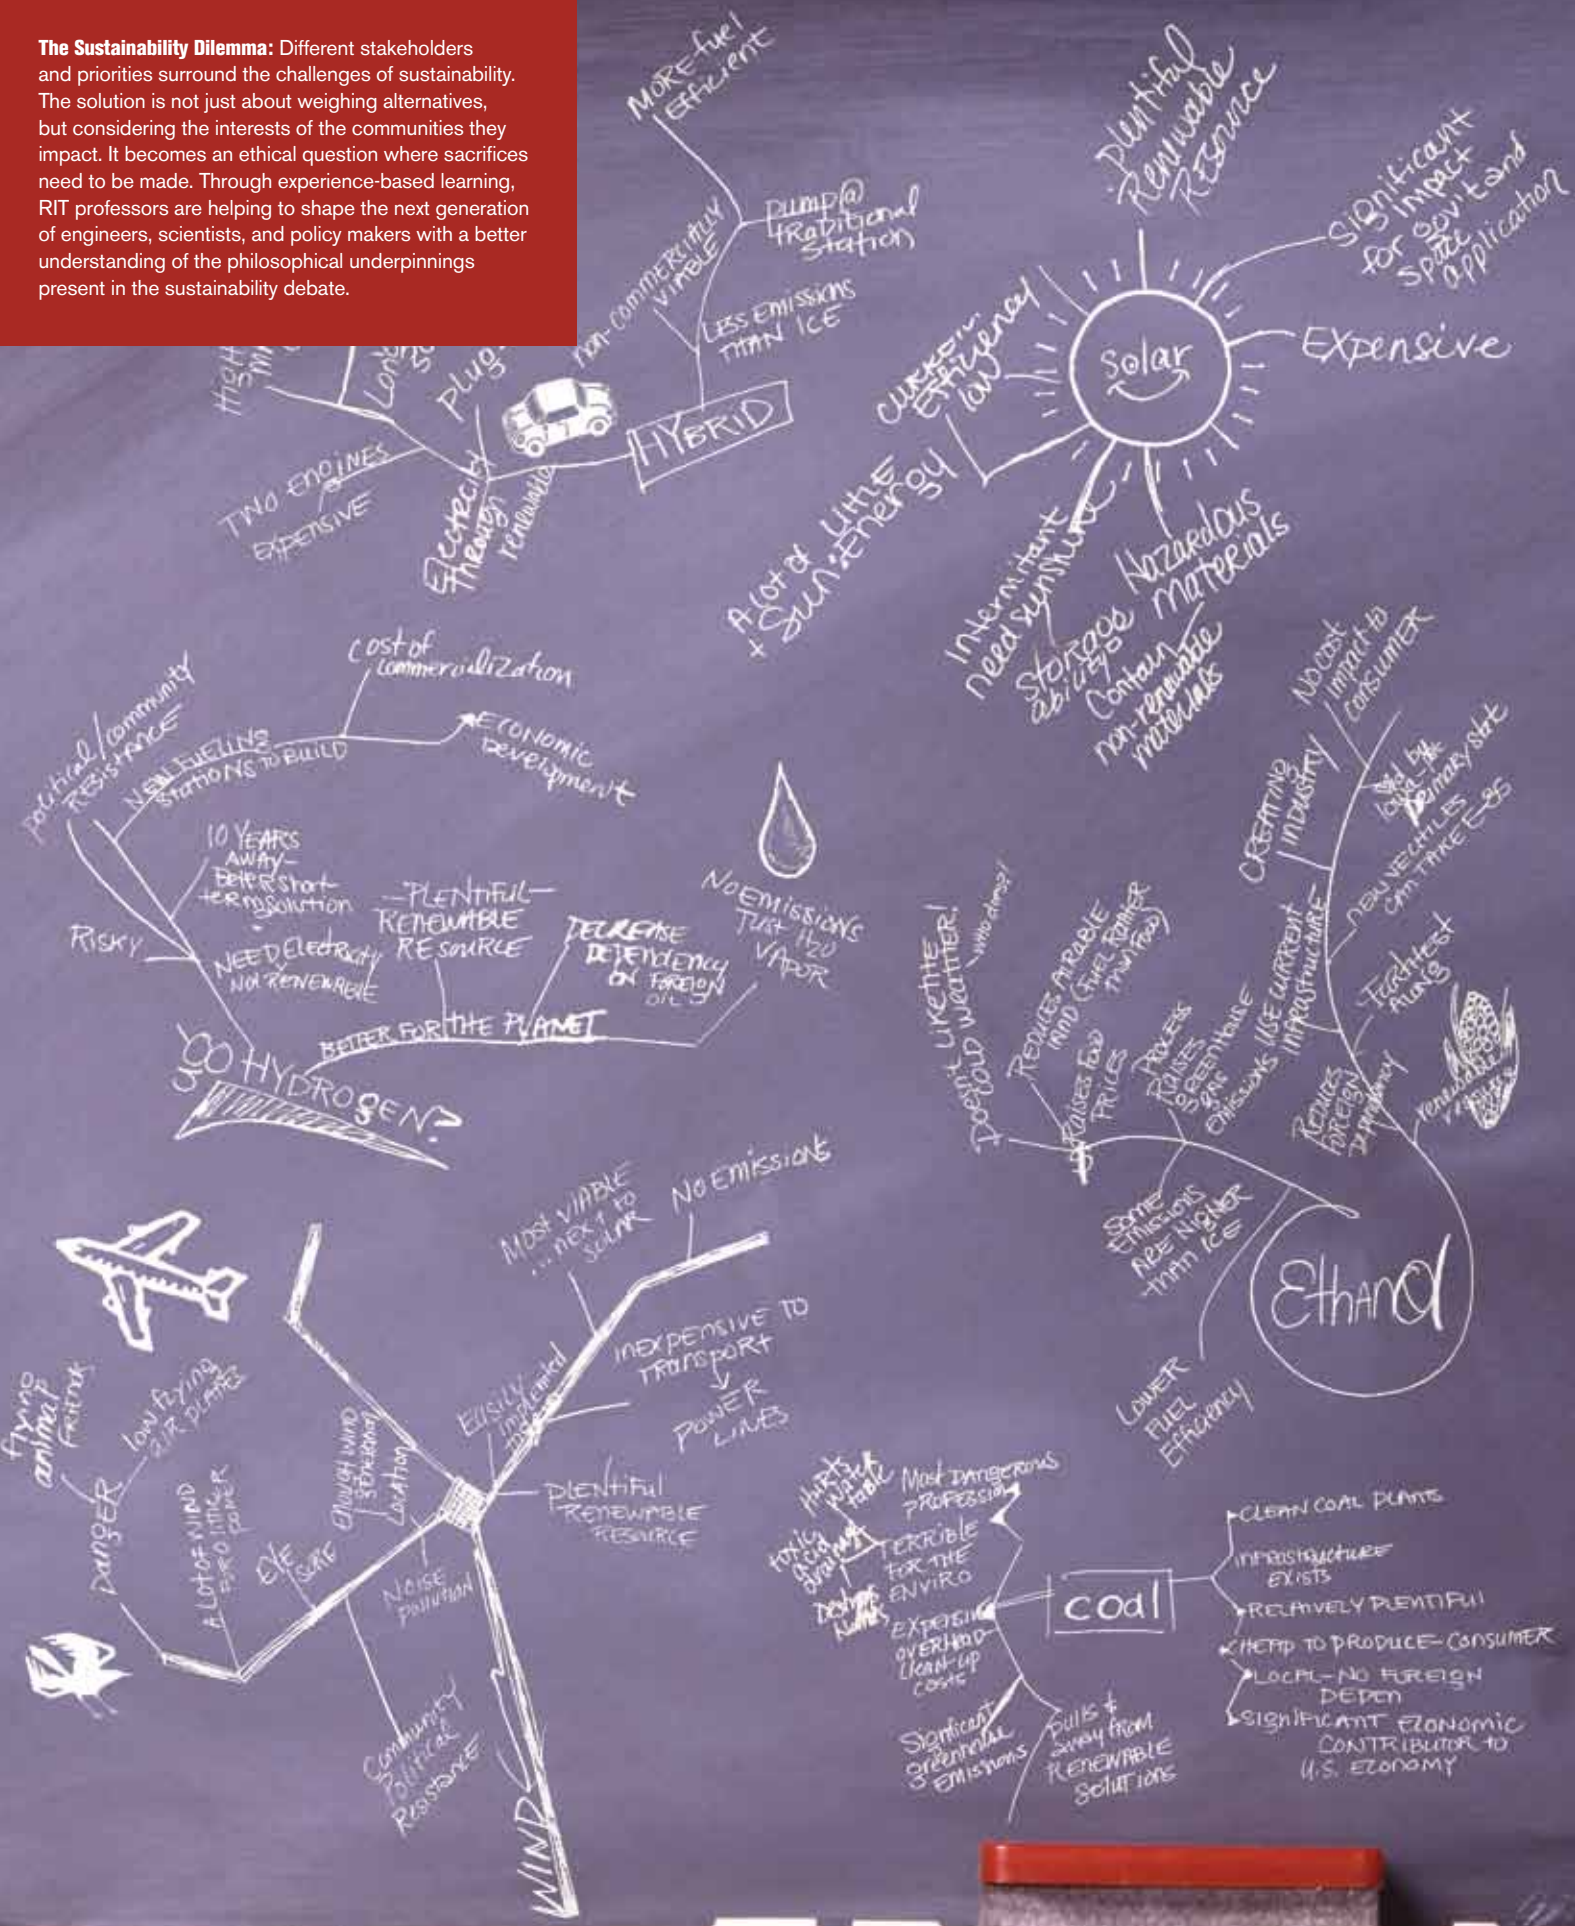 The Sustainability Dilemma: Different stakeholders
and priorities surround the challenges of sustainability.
The solution is not just about weighing alternatives,
but considering the interests of the communities they
impact. It becomes an ethical question where sacrifices
need to be made. Through experience-based learning,
RIT professors are helping to shape the next generation
of engineers, scientists, and policy makers with a better
understanding of the philosophical underpinnings
present in the sustainability debate.
MORE fuel
Efficient
pump@
traditional
station
non-commercially
VIABLE
LESS EMISSIONS
THAN ICE
HYBRID
plug
TWO ENGINES
EXPENSIVE
Electricity
through
renewable
plentiful
Renwable
Resource
Significant
impact
for gov't and
space
application
Expensive
solar
Efficiency
low
A lot of
Sun
little
Energy
Intermitant
need sunshine
storage
ability
Hazardous
materials
Contain
non-renewable
materials
political/community
RESISTANCE
NEW FUELING
STATIONS TO BUILD
cost of
commercialization
ECONOMIC
Development
10 YEARS
AWAY-
BETTER short
term solution
RISKY
NEED Electricity
NOT RENEWABLE
-PLENTIFUL-
RENEWABLE
RESOURCE
DECREASE
DEPENDENCY
ON FOREIGN
OIL
NO EMISSIONS
JUST H2O
VAPOR
BETTER FOR THE PLANET
HYDROGEN?
No cost
impact to
consumer
CREATING
INDUSTRY
NEW VECHILES
CAN TAKE E-85
USE CURRENT
INFRASTRUCTURE
Farthest
Along
REDUCES
FOREIGN
Dependency
renewable
Doesnt LIKE THE
COLD WEATHER!
-who does?!
REDUCES AIRABLE
LAND (FUEL RATHER
THAN FOOD)
RAISES FOOD
PRICES
PROCESS
RAISES
GREENHOUSE
GAS
EMISSIONS
SOME
EMISSIONS
ARE HIGHER
THAN ICE
Ethanol
LOWER
FUEL
Efficiency
MOST VIABLE
...NEXT TO
SOLAR
NO EMISSIONS
INEXPENSIVE TO
TRANSPORT
POWER
LINES
EASILY
implemented
PLENTIFUL
RENEWABLE
RESOURCE
flying
animal
friends
low flying
AIR PLANES
DANGER
A LOT OF WIND
FOR LITTLE
POWER
EYE
SORE
ENOUGH WIND
Location
NOISE
pollution
Community
Political
Resistance
WIND
HURTS
WATER
table
Most DANGEROUS
PROFESSION
toxic
acid
drainage
TERRIBLE
FOR THE
ENVIRO
EXPENSIVE
OVERHEAD
Clean-up
costs
Significant
greenhouse
Emissions
pulls $
away from
RENEWABLE
SOLUTIONS
coal
CLEAN COAL PLANTS
INFRASTRUCTURE
EXISTS
RELATIVELY PLENTIFUL
CHEAP TO PRODUCE-CONSUMER
LOCAL-NO FOREIGN
DEPEN
SIGNIFICANT ECONOMIC
CONTRIBUTOR TO
U.S. ECONOMY